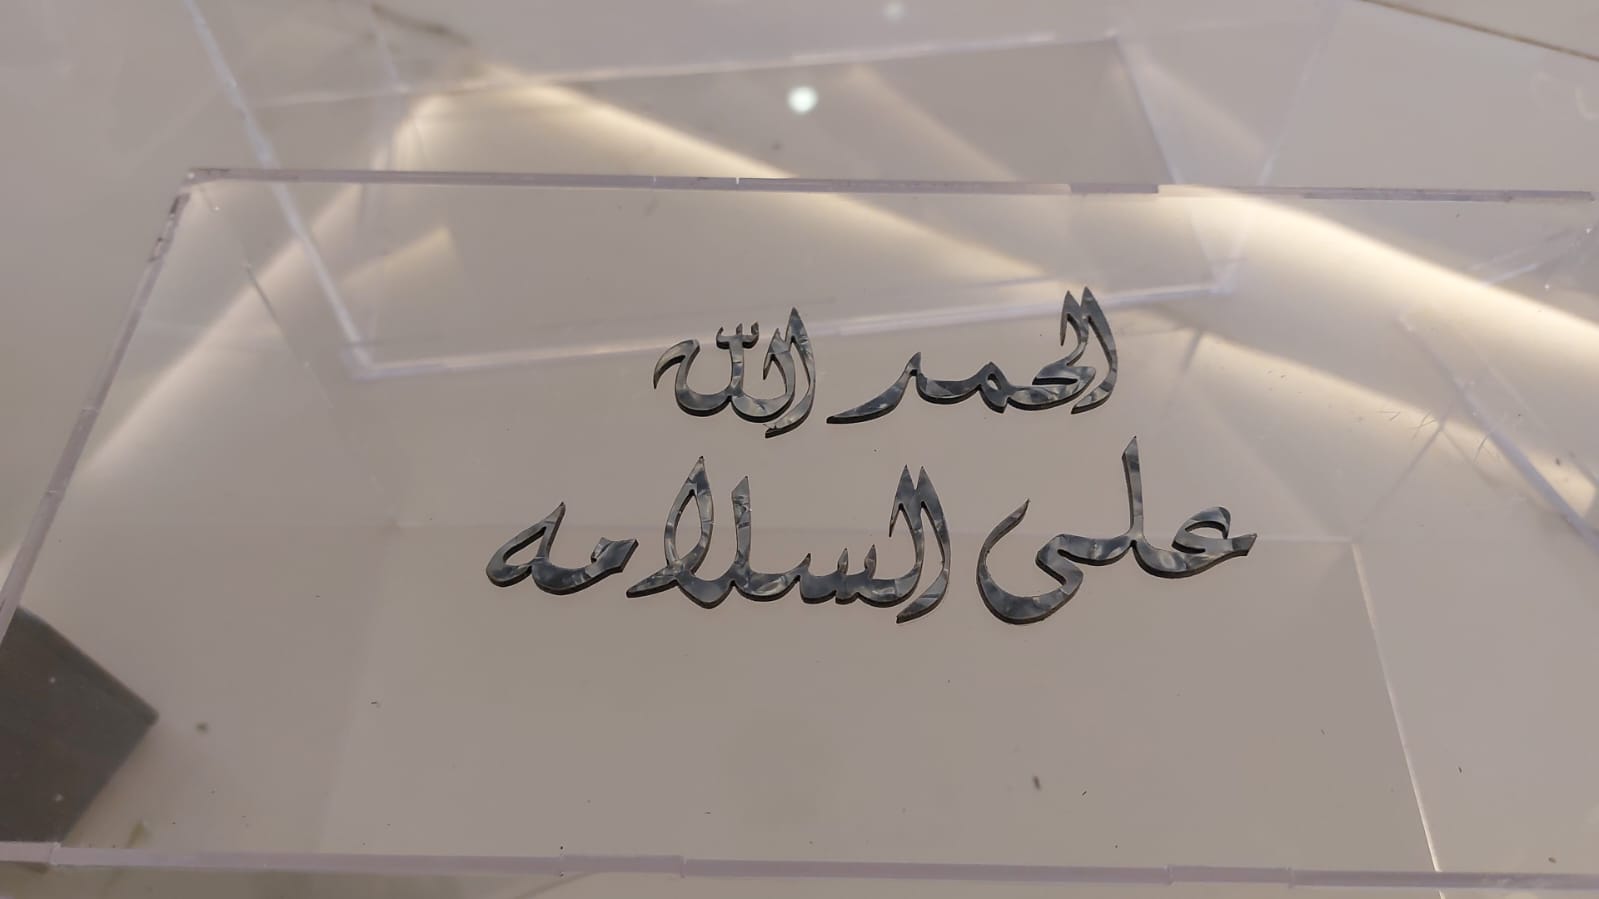 الحمد الله
على السلامه